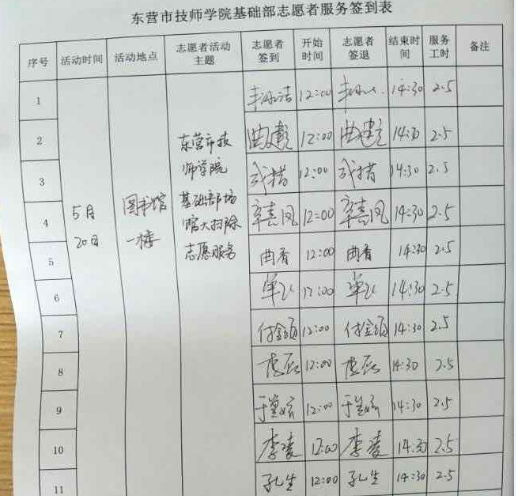 东营市技师学院基础部志愿者服务签到表
序号 活动时间 活动地点 志愿者活动主题 志愿者签到 开始时间 志愿者签退 结束时间 服务工时 备注
5月20日 图书馆一楼 东营市技师学院基础部场馆大扫除志愿服务
1 12:00 14:30 2.5
2 12:00 14:30 2.5
3 12:00 14:30 2.5
4 12:00 14:30 2.5
5 曲香 12:00 曲香 14:30 2.5
6 12:00 14:30 2.5
7 12:00 14:30 2.5
8 12:00 14:30 2.5
9 12:00 14:30 2.5
10 李凌 12:00 李凌 14:30 2.5
11 孔生 12:00 孔生 14:30 2.5